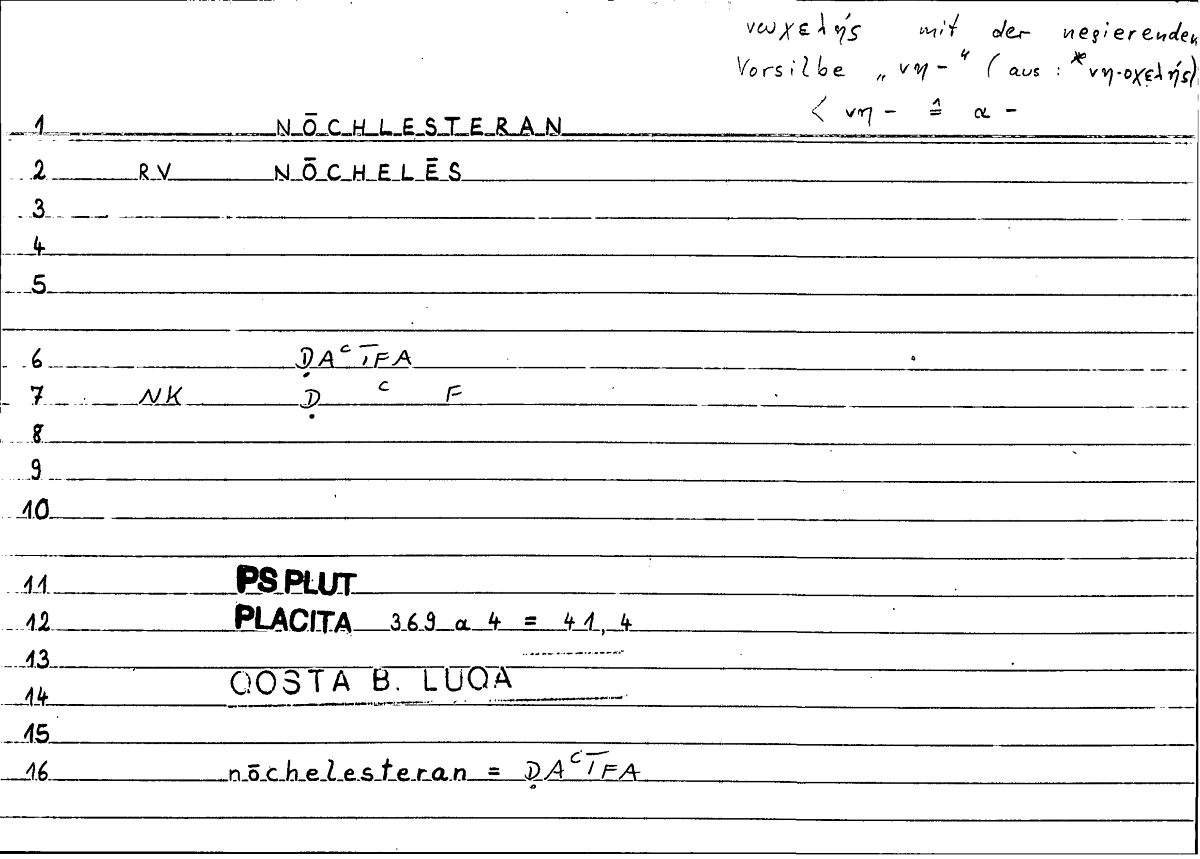 νωχελής mit der negierenden
Vorsilbe „νη-“ (aus: *νη-οχελής)
< νη- ≙ α-
1 NŌCHLESTERAN
2 RV NŌCHELĒS
3
4
5
6 ḌAᶜĪFA
7 NK Ḍ ᶜ F
8
9
10
11 PS PLUT
12 PLACITA 369 a 4 = 41,4
13
14 QOSTA B. LUQA
15
16 nōchelesteran = ḌAᶜĪFA